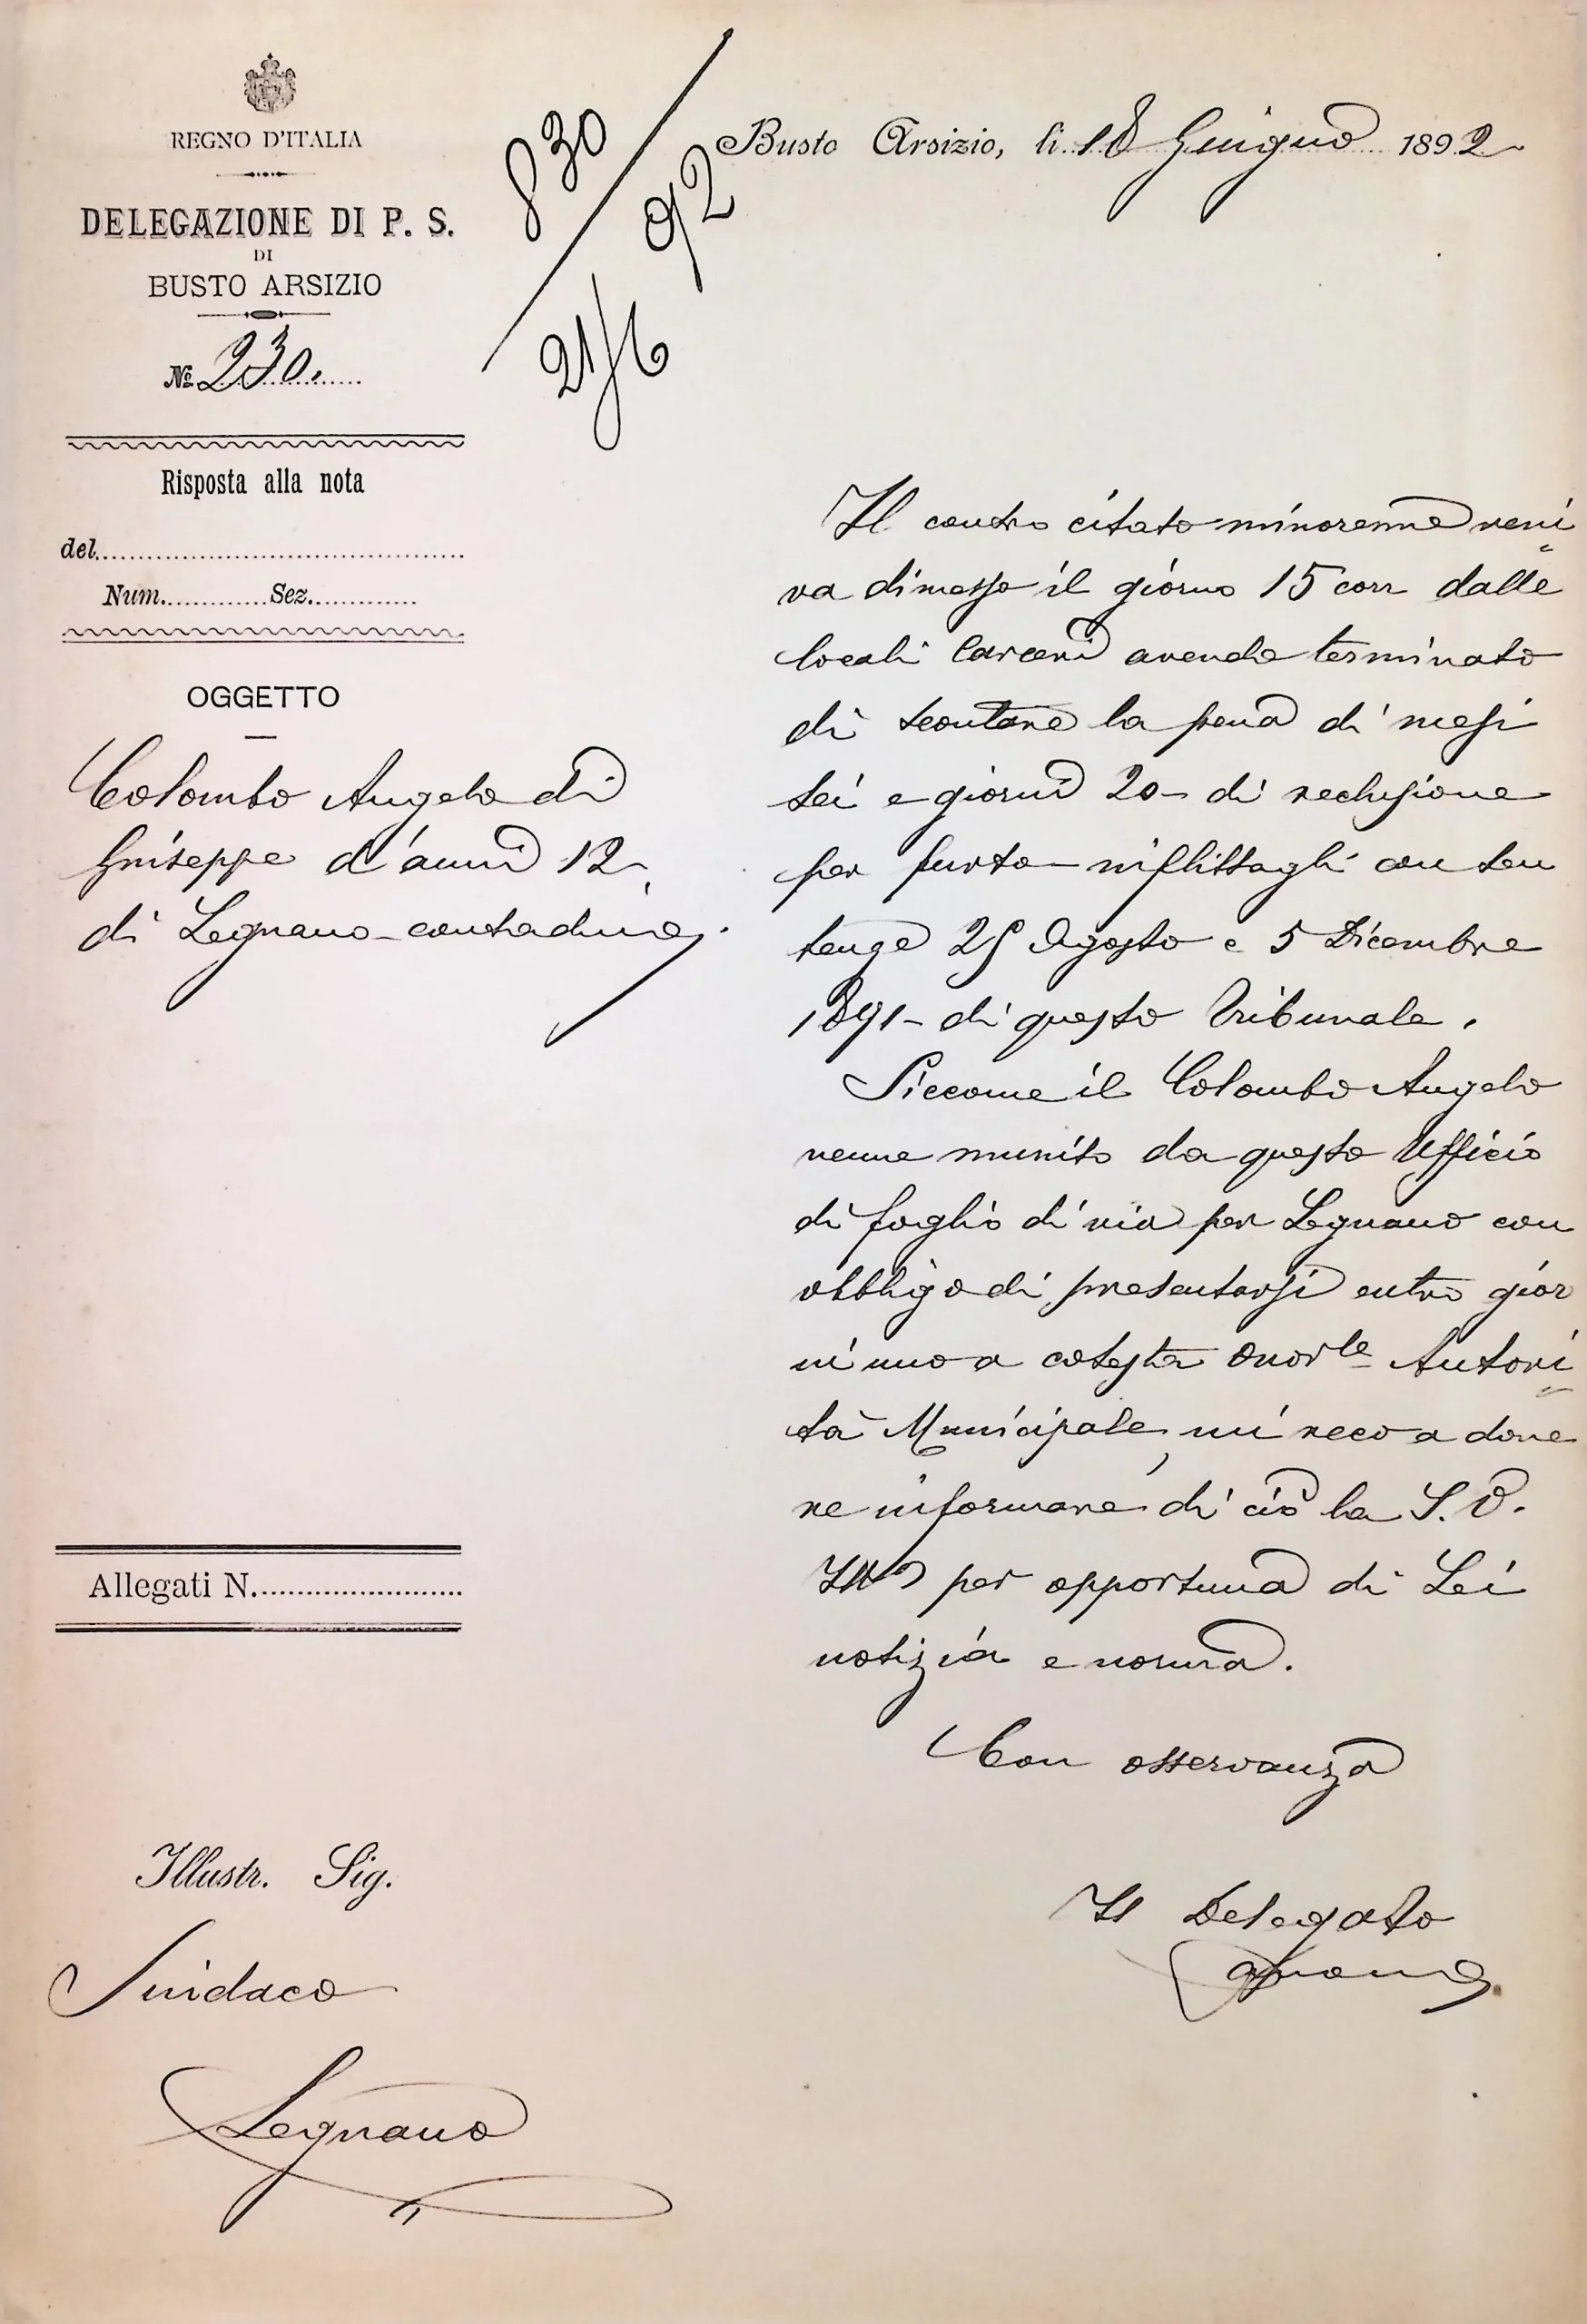 REGNO D'ITALIA
DELEGAZIONE DI P. S.
DI
BUSTO ARSIZIO
№ 230.
Risposta alla nota
del
Num. Sez.
OGGETTO
Colombo Angelo di
Giuseppe d'anni 12
di Legnano - contadino.
Allegati N.
Illustr. Sig.
Sindaco
Legnano
830
92
21/6
Busto Arsizio, li 18 Giugno 1892
Il contro citato minorenne veni
va dimesso il giorno 15 corr dalle
locali Carceri avendo terminato
di scontare la pena di mesi
sei e giorni 20 - di reclusione
per furto - inflittagli con sen
tenze 25 Agosto e 5 Dicembre
1891 - di questo Tribunale.
Siccome il Colombo Angelo
venne munito da questo Ufficio
di foglio di via per Legnano con
obbligo di presentarsi entro gior
ni uno a cotesta Onorle Autori
tà Municipale, mi reco a dove
re informare di ciò la S. V.
Ill per opportuna di Lei
notizia e norma.
Con osservanza
Il Delegato